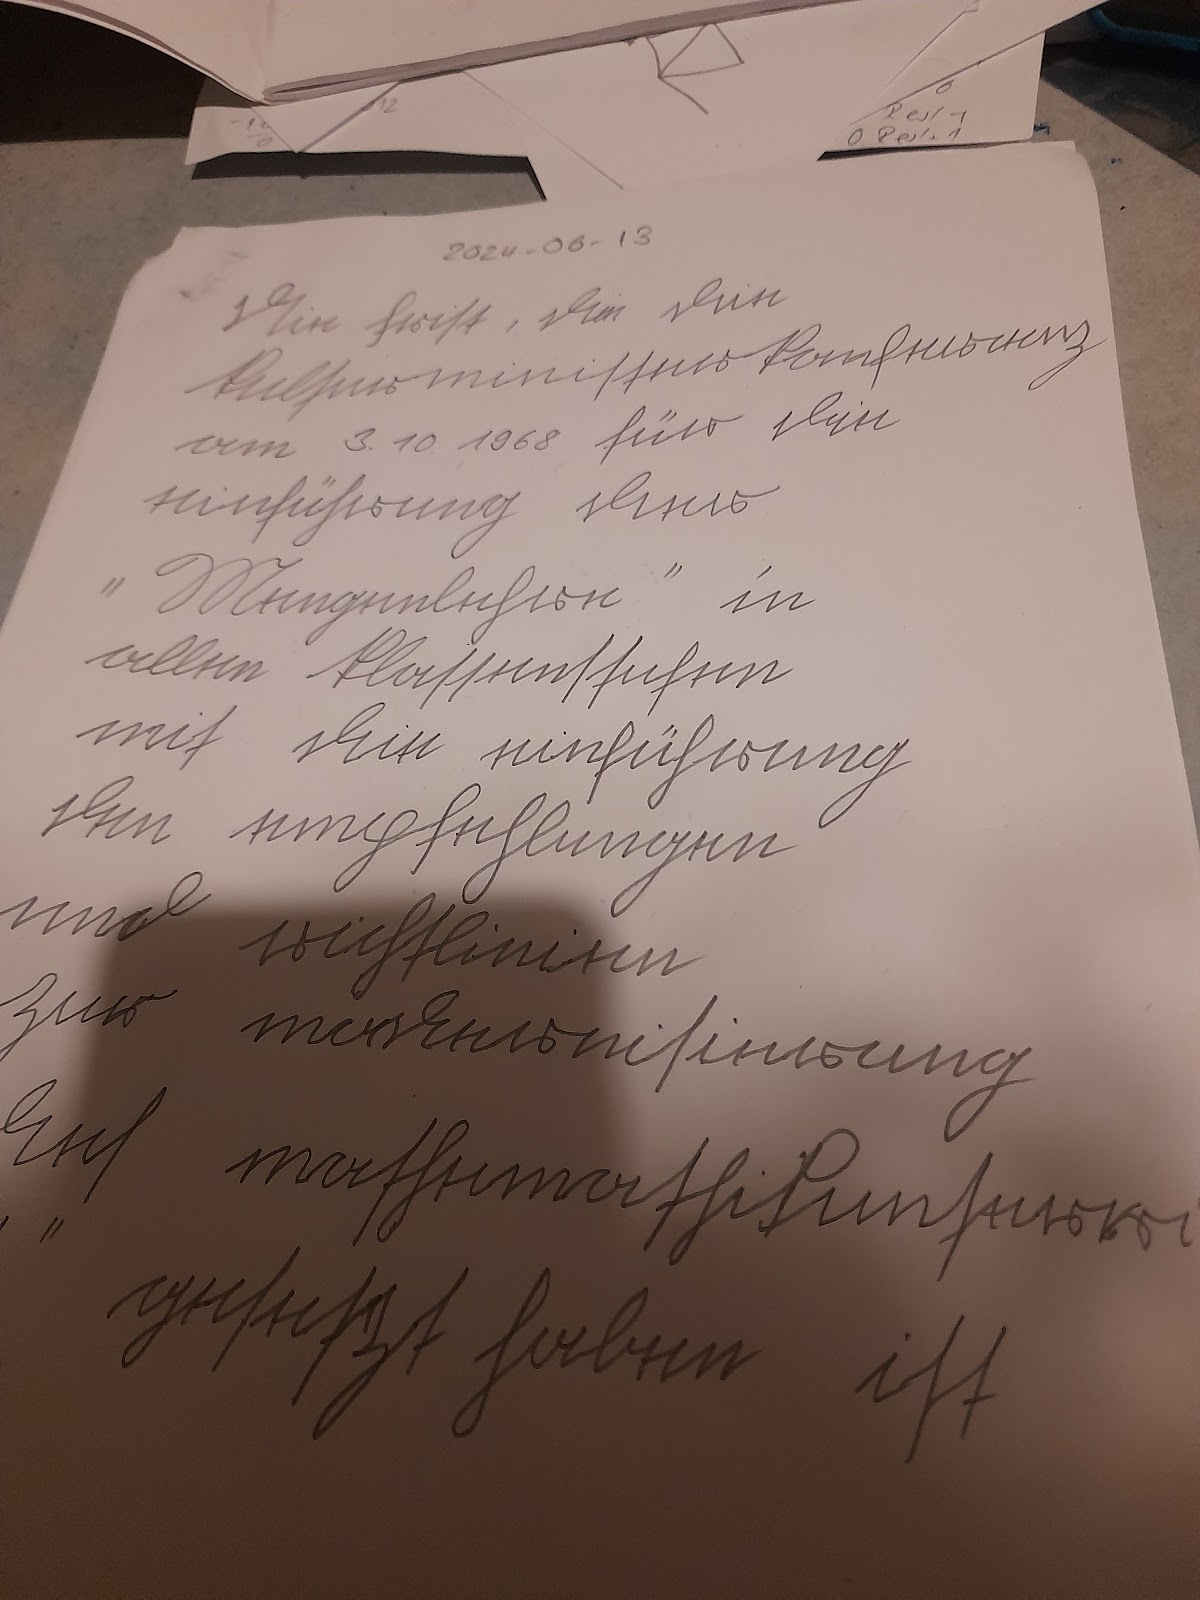 -10
/0
12
0
Rest 1
0 Rest. 1
2024-06-13
die frist, die die
kultusministerkonferenz
am 3.10 1968 für die
einführung der
"Mengenlehre" in
allen klassenstufen
mit die einführung
den empfehlungen
und richtlinien
zur modernisierung
des mathemathikunterri
"
gesetzt haben ist